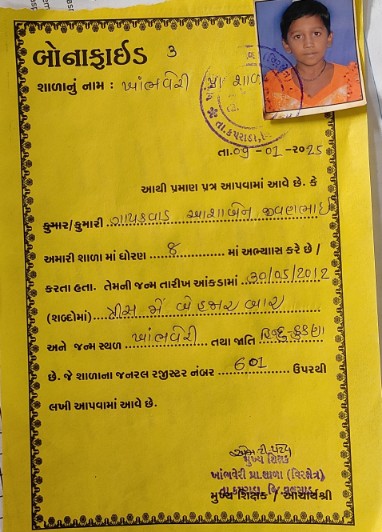 બોનાફાઈડ 3
શાળાનું નામ : ખાંભવેરી પ્રા શાળા
તા.09-01-૨૦25
આથી પ્રમાણ પત્ર આપવામાં આવે છે. કે
કુમાર/કુમારી ગાયકવાડ આશાબેન જીવણભાઈ
અમારી શાળા માં ધોરણ 8 માં અભ્યાસ કરે છે /
કરતા હતા. તેમની જન્મ તારીખ આંકડામાં 30/05/2012
(શબ્દોમાં) ત્રીસ મે બે હજાર બાર
અને જન્મ સ્થળ ખાંભવેરી તથા જાતિ હિન્દુ-કુકણા
છે. જે શાળાના જનરલ રજીસ્ટર નંબર 601 ઉપરથી
લખી આપવામાં આવે છે.
મુખ્ય શિક્ષક
ખાંભવેરી પ્રા.શાળા (વિરક્ષેત્ર)
તા.કપરાડા, જિ.વલસાડ
મુખ્ય શિક્ષક / આચાર્યશ્રી